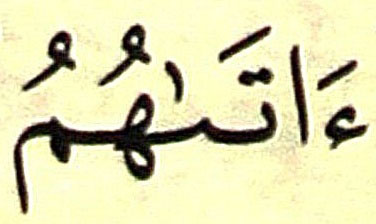 ءَاتَىٰهُمُ